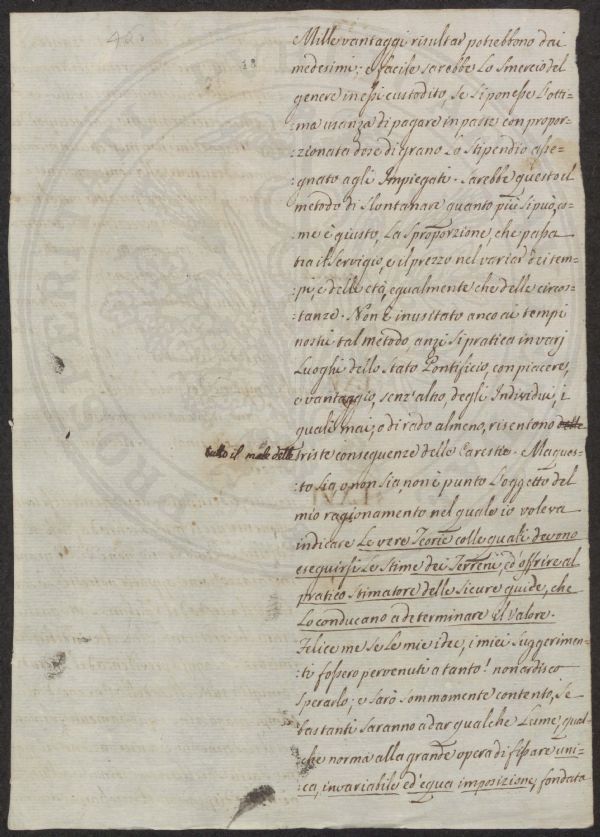 Mille vantaggi risultar potrebbono dai
medesimi; e facile sarebbe lo smercio del
genere in essi custodito, se si ponesse l'otti-
:ma usanza di pagare in parte con propor-
:zionata dose di grano lo stipendio asse-
:gnato agli Impiegati. Sarebbe questo il
metodo di slontanare quanto più si può, co-
me è giusto, la sproporzione, che passa
tra il servigio, e il prezzo nel variar dei tem-
:pi, e delle età, egualmente che delle circos-
:tanze. Non è inusitato anco ai tempi
nostri tal metodo, anzi si pratica in varj
Luoghi dello Stato Pontificio, con piacere,
e vantaggio, senz'altro, degli Individui, i
quali mai, o di rado almeno, risentono delle
tutto il male delle triste conseguenze delle Carestie. Ma ques-
to sia, o non sia, non è punto l'oggetto del
mio ragionamento nel quale io voleva
indicare le vere Teorie colle quali devono
eseguirsi le Stime dei Terreni, ed offrire al
pratico Stimatore delle sicure guide, che
lo conducano a determinare il Valore.
Felice me se le mie idee, i miei suggerimen-
ti fossero pervenuti a tanto! non ardisco
sperarlo; e sarò sommamente contento, se
bastanti saranno a dar qualche lume, qual-
che norma alla grande opera di fissare uni-
:ca, invariabile ed equa imposizione, fondata